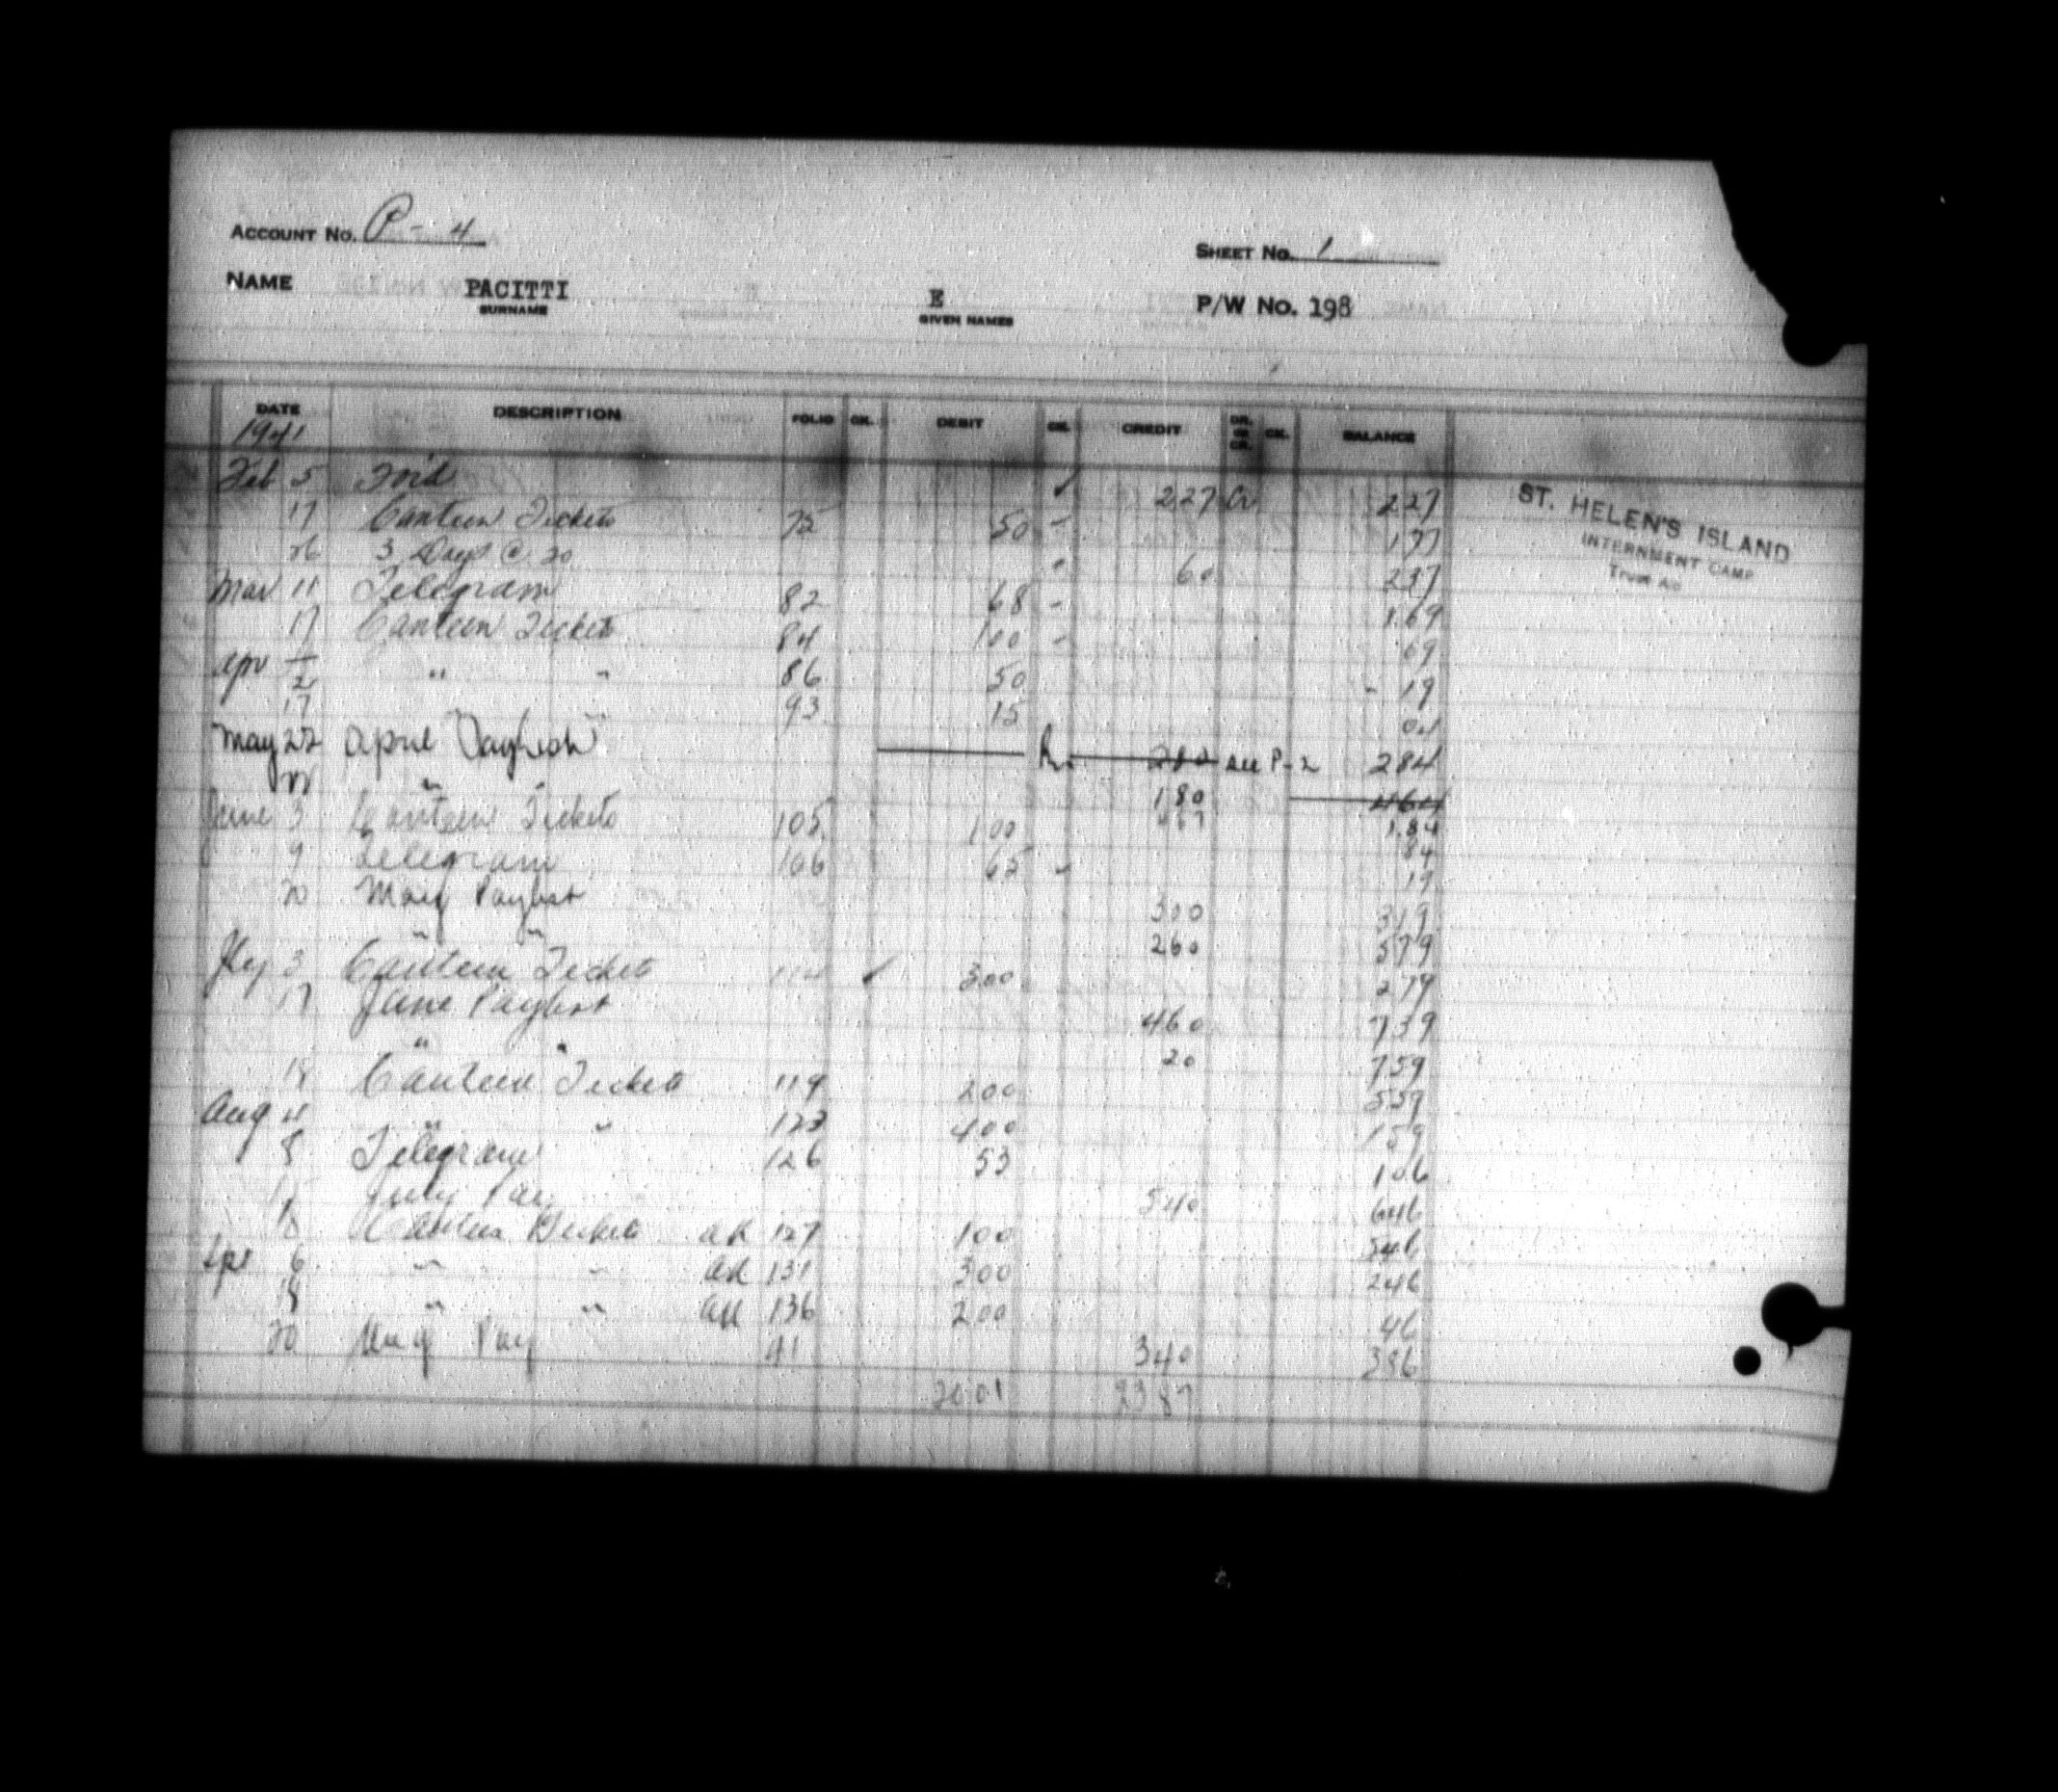 ACCOUNT NO. P-4
SHEET NO. 1
NAME PACITTI E P/W NO. 198
SURNAME GIVEN NAMES
DATE DESCRIPTION FOLIO CK. DEBIT CK. CREDIT DR. OR CR. CK. BALANCE
1941
Feb 5 Fwd ✓ 227 Cr 227
17 Canteen Tickets 75 50 177
26 3 Days @ 20 60 237
Mar 11 Telegram 82 68 169
17 Canteen Tickets 84 100 69
Apr 2 " " 86 50 19
17 " " 93 15 04
May 22 April Paylist 280 see P-2 284
" 180 464
184
June 3 Canteen Tickets 105 100 84
9 Telegram 106 65 19
20 May Paylist 300 319
" " 260 579
Jly 3 Canteen Tickets ✓ 300 279
17 June Paylist 460 739
" " 20 759
18 Canteen Tickets 119 200 559
Aug 4 " " 123 400 159
8 Telegram 126 53 106
July Pay 540 646
Canteen Tickets 127 100 546
Spt 6 " " 131 300 246
18 " " 136 200 46
20 Aug Pay 41 340 386
2001 2387
ST. HELEN'S ISLAND
INTERNMENT CAMP
Trust A/c